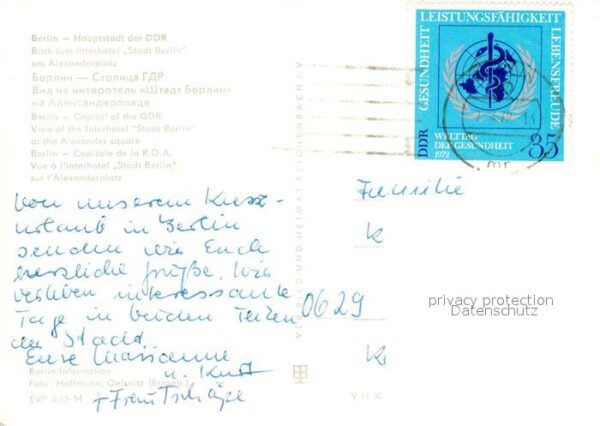 Berlin – Hauptstadt der DDR
Blick zum Interhotel „Stadt Berlin"
am Alexanderplatz
Берлин — Столица ГДР
Вид на интеротель «Штадт Берлин»
на Александерплаце
Berlin – Capital of the GDR
View of the Interhotel "Stadt Berlin"
at the Alexander square
Berlin – Capitale de la R.D.A.
Vue à l'interhotel „Stadt Berlin"
sur l'Alexanderplatz
GESUNDHEIT LEISTUNGSFÄHIGKEIT LEBENSFREUDE
DDR
WELTTAG
DER GESUNDHEIT
1972
35
Von unserem Kurz-
urlaub in Berlin
senden wir Euch
herzliche Grüße. Wir
verleben interessante
Tage in beiden Teilen
der Stadt.
Eure Marianne
u. Kurt
+ Frau
Familie
K
0629
K
privacy protection
Datenschutz
VERLAG BILD UND HEIMAT REICHENBACH I. V.
Berlin-Information
Foto: Hoffmann, Oelsnitz (Erzgeb.)
EVP 0,25 M
V 11 50